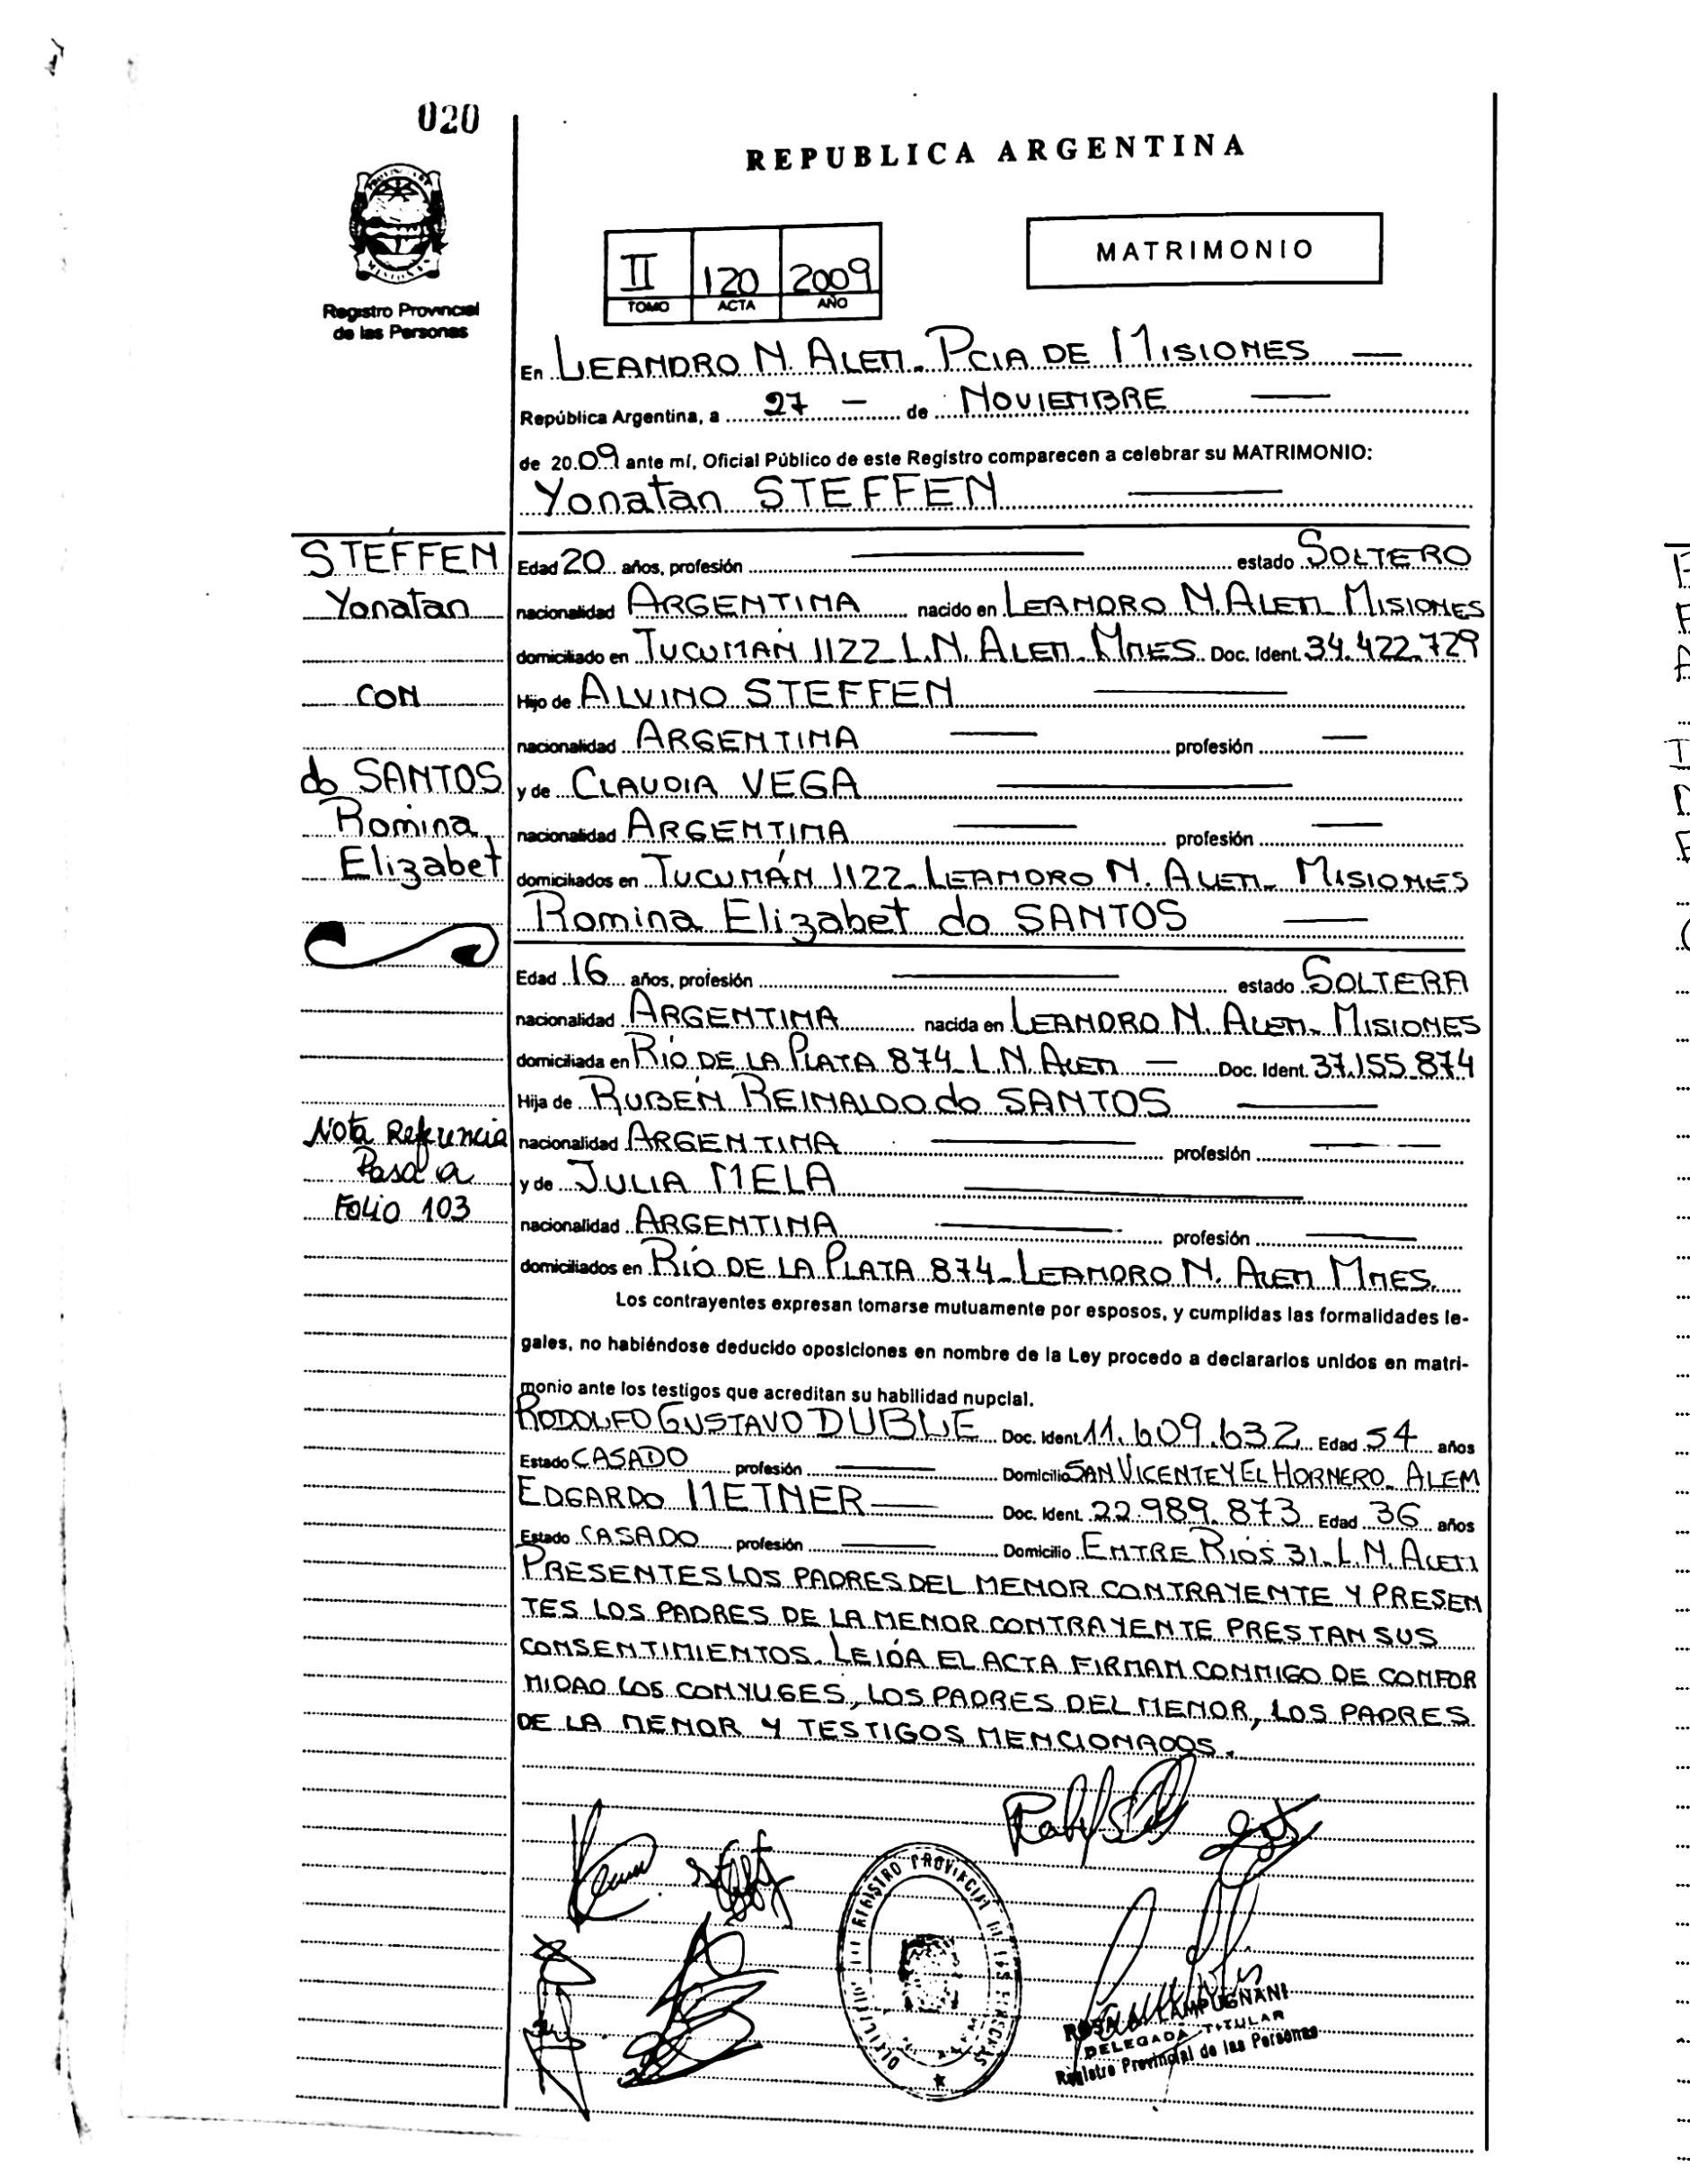 020
REPUBLICA ARGENTINA
MATRIMONIO
II 120 2009
TOMO ACTA AÑO
Registro Provincial
de las Personas
En LEANDRO N. ALEM. PCIA DE MISIONES
República Argentina, a 27 - de NOVIEMBRE
de 2009 ante mí, Oficial Público de este Registro comparecen a celebrar su MATRIMONIO:
Yonatan STEFFEN
STEFFEN
Yonatan
CON
do SANTOS
Romina
Elizabet
Edad 20 años, profesión estado SOLTERO
nacionalidad ARGENTINA nacido en LEANDRO N. ALEM MISIONES
domiciliado en TUCUMÁN 1122 L.N. ALEM MNES. Doc. Ident. 34.422.729
Hijo de ALVINO STEFFEN
nacionalidad ARGENTINA profesión
y de CLAUDIA VEGA
nacionalidad ARGENTINA profesión
domiciliados en TUCUMÁN 1122 LEANDRO N. ALEM MISIONES
Romina Elizabet do SANTOS
Edad 16 años, profesión estado SOLTERA
nacionalidad ARGENTINA nacida en LEANDRO N. ALEM MISIONES
domiciliada en RÍO DE LA PLATA 874 L.N. ALEM Doc. Ident. 37.155.874
Hija de RUBÉN REINALDO do SANTOS
nacionalidad ARGENTINA profesión
y de JULIA MELA
nacionalidad ARGENTINA profesión
domiciliados en RÍO DE LA PLATA 874 LEANDRO N. ALEM MNES.
Nota Referencia
Pasa a
FOLIO 103
Los contrayentes expresan tomarse mutuamente por esposos, y cumplidas las formalidades le-
gales, no habiéndose deducido oposiciones en nombre de la Ley procedo a declararlos unidos en matri-
monio ante los testigos que acreditan su habilidad nupcial.
RODOLFO GUSTAVO DUBLE Doc. Ident. 11.609.632 Edad 54 años
Estado CASADO profesión Domicilio SAN VICENTE Y EL HORNERO. ALEM
EDGARDO METNER Doc. Ident. 22.989.873 Edad 36 años
Estado CASADO profesión Domicilio ENTRE RIOS 31. L.N. ALEM
PRESENTES LOS PADRES DEL MENOR CONTRAYENTE Y PRESEN
TES LOS PADRES DE LA MENOR CONTRAYENTE PRESTAN SUS
CONSENTIMIENTOS. LEIDA EL ACTA FIRMAN CONMIGO DE CONFOR
MIDAD LOS CONYUGES, LOS PADRES DEL MENOR, LOS PADRES
DE LA MENOR Y TESTIGOS MENCIONADOS.
REGISTRO PROVINCIAL DE LAS PERSONAS
ROSA LAMPUGNANI
DELEGADA TITULAR
Registro Provincial de las Personas